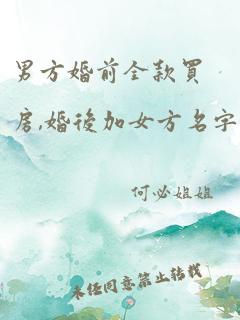 男方婚前全款買
房,婚後加女方名字
何必姐姐
未经同意禁止转载